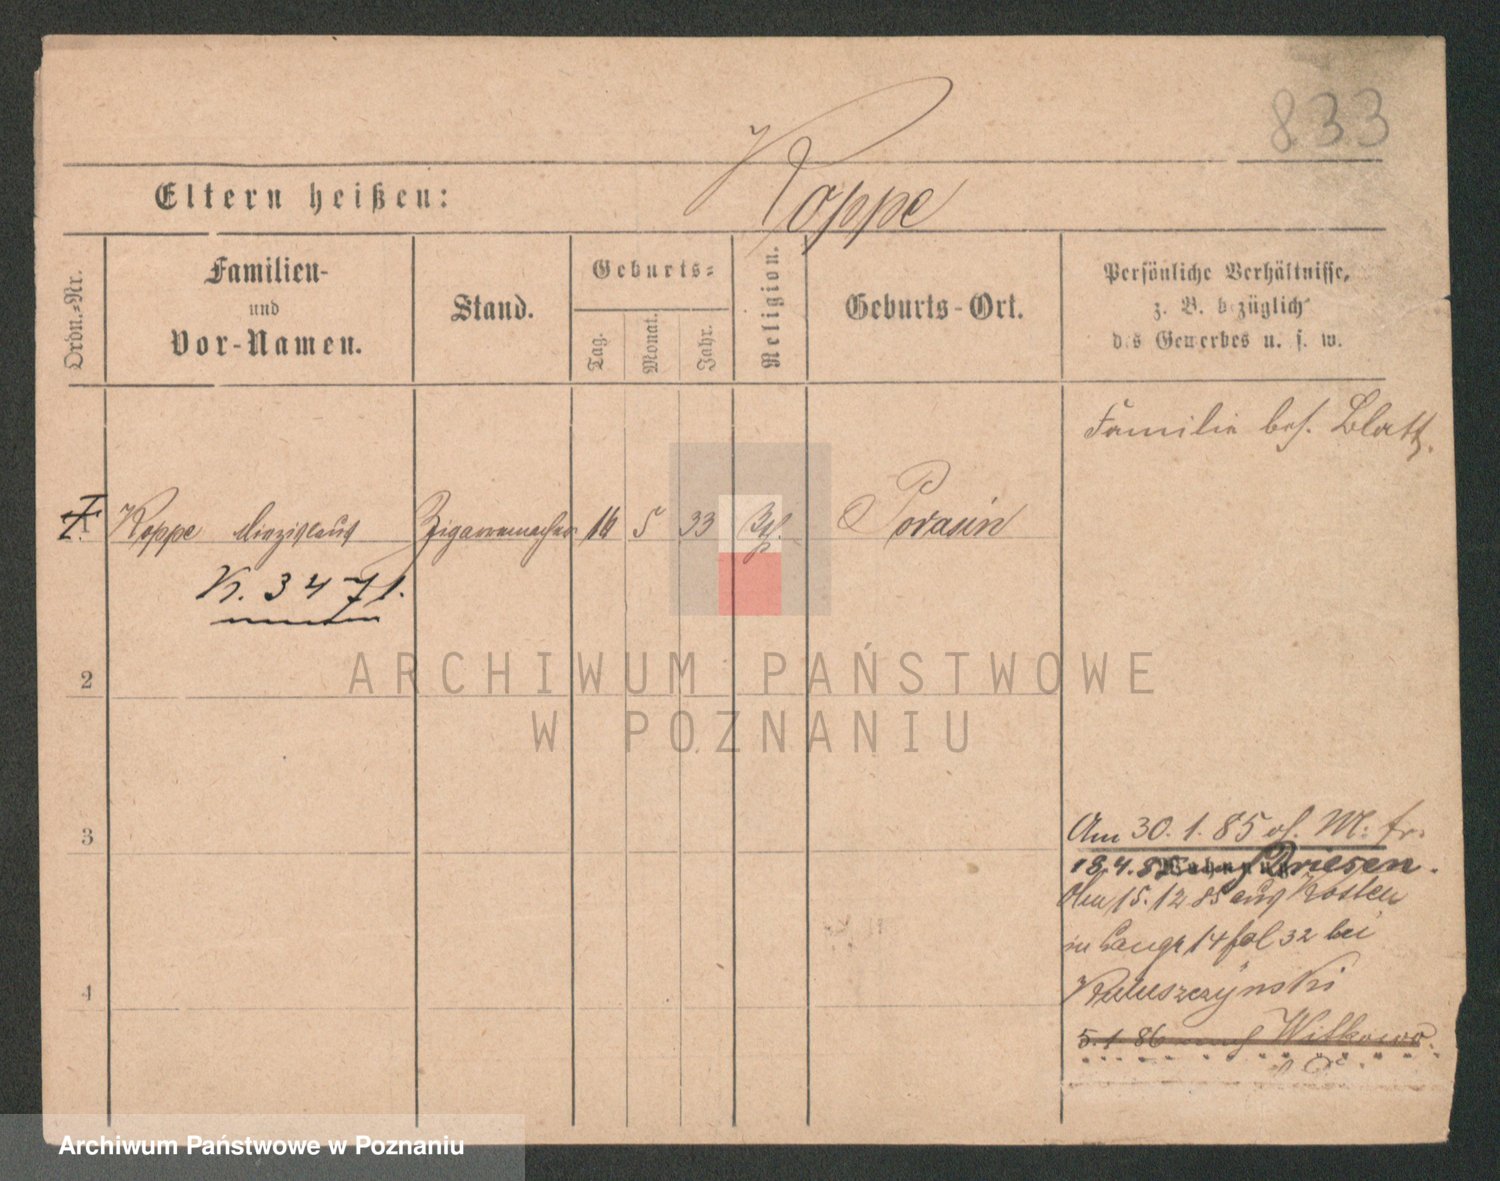 833
Eltern heißen: Koppe
Ordn.-Nr.
Familien-
und
Vor-Namen.
Stand.
Geburts-
Tag.
Monat.
Jahr.
Religion.
Geburts-Ort.
Persönliche Verhältnisse,
z. B. bezüglich
des Gewerbes u. s. w.
Familie bes. Blatt.
1 Koppe Zigarrenmacher 16 5 33 Porasin
K. 3471.
2
ARCHIWUM PAŃSTWOWE
W POZNANIU
3
Am 30. 1. 85 M. fr.
18. 4. 85 Driesen.
Am 15. 12 85 aus Kosten
in Langr 14 fol 32 bei
4
5. 1 86 Witkowo.
Archiwum Państwowe w Poznaniu